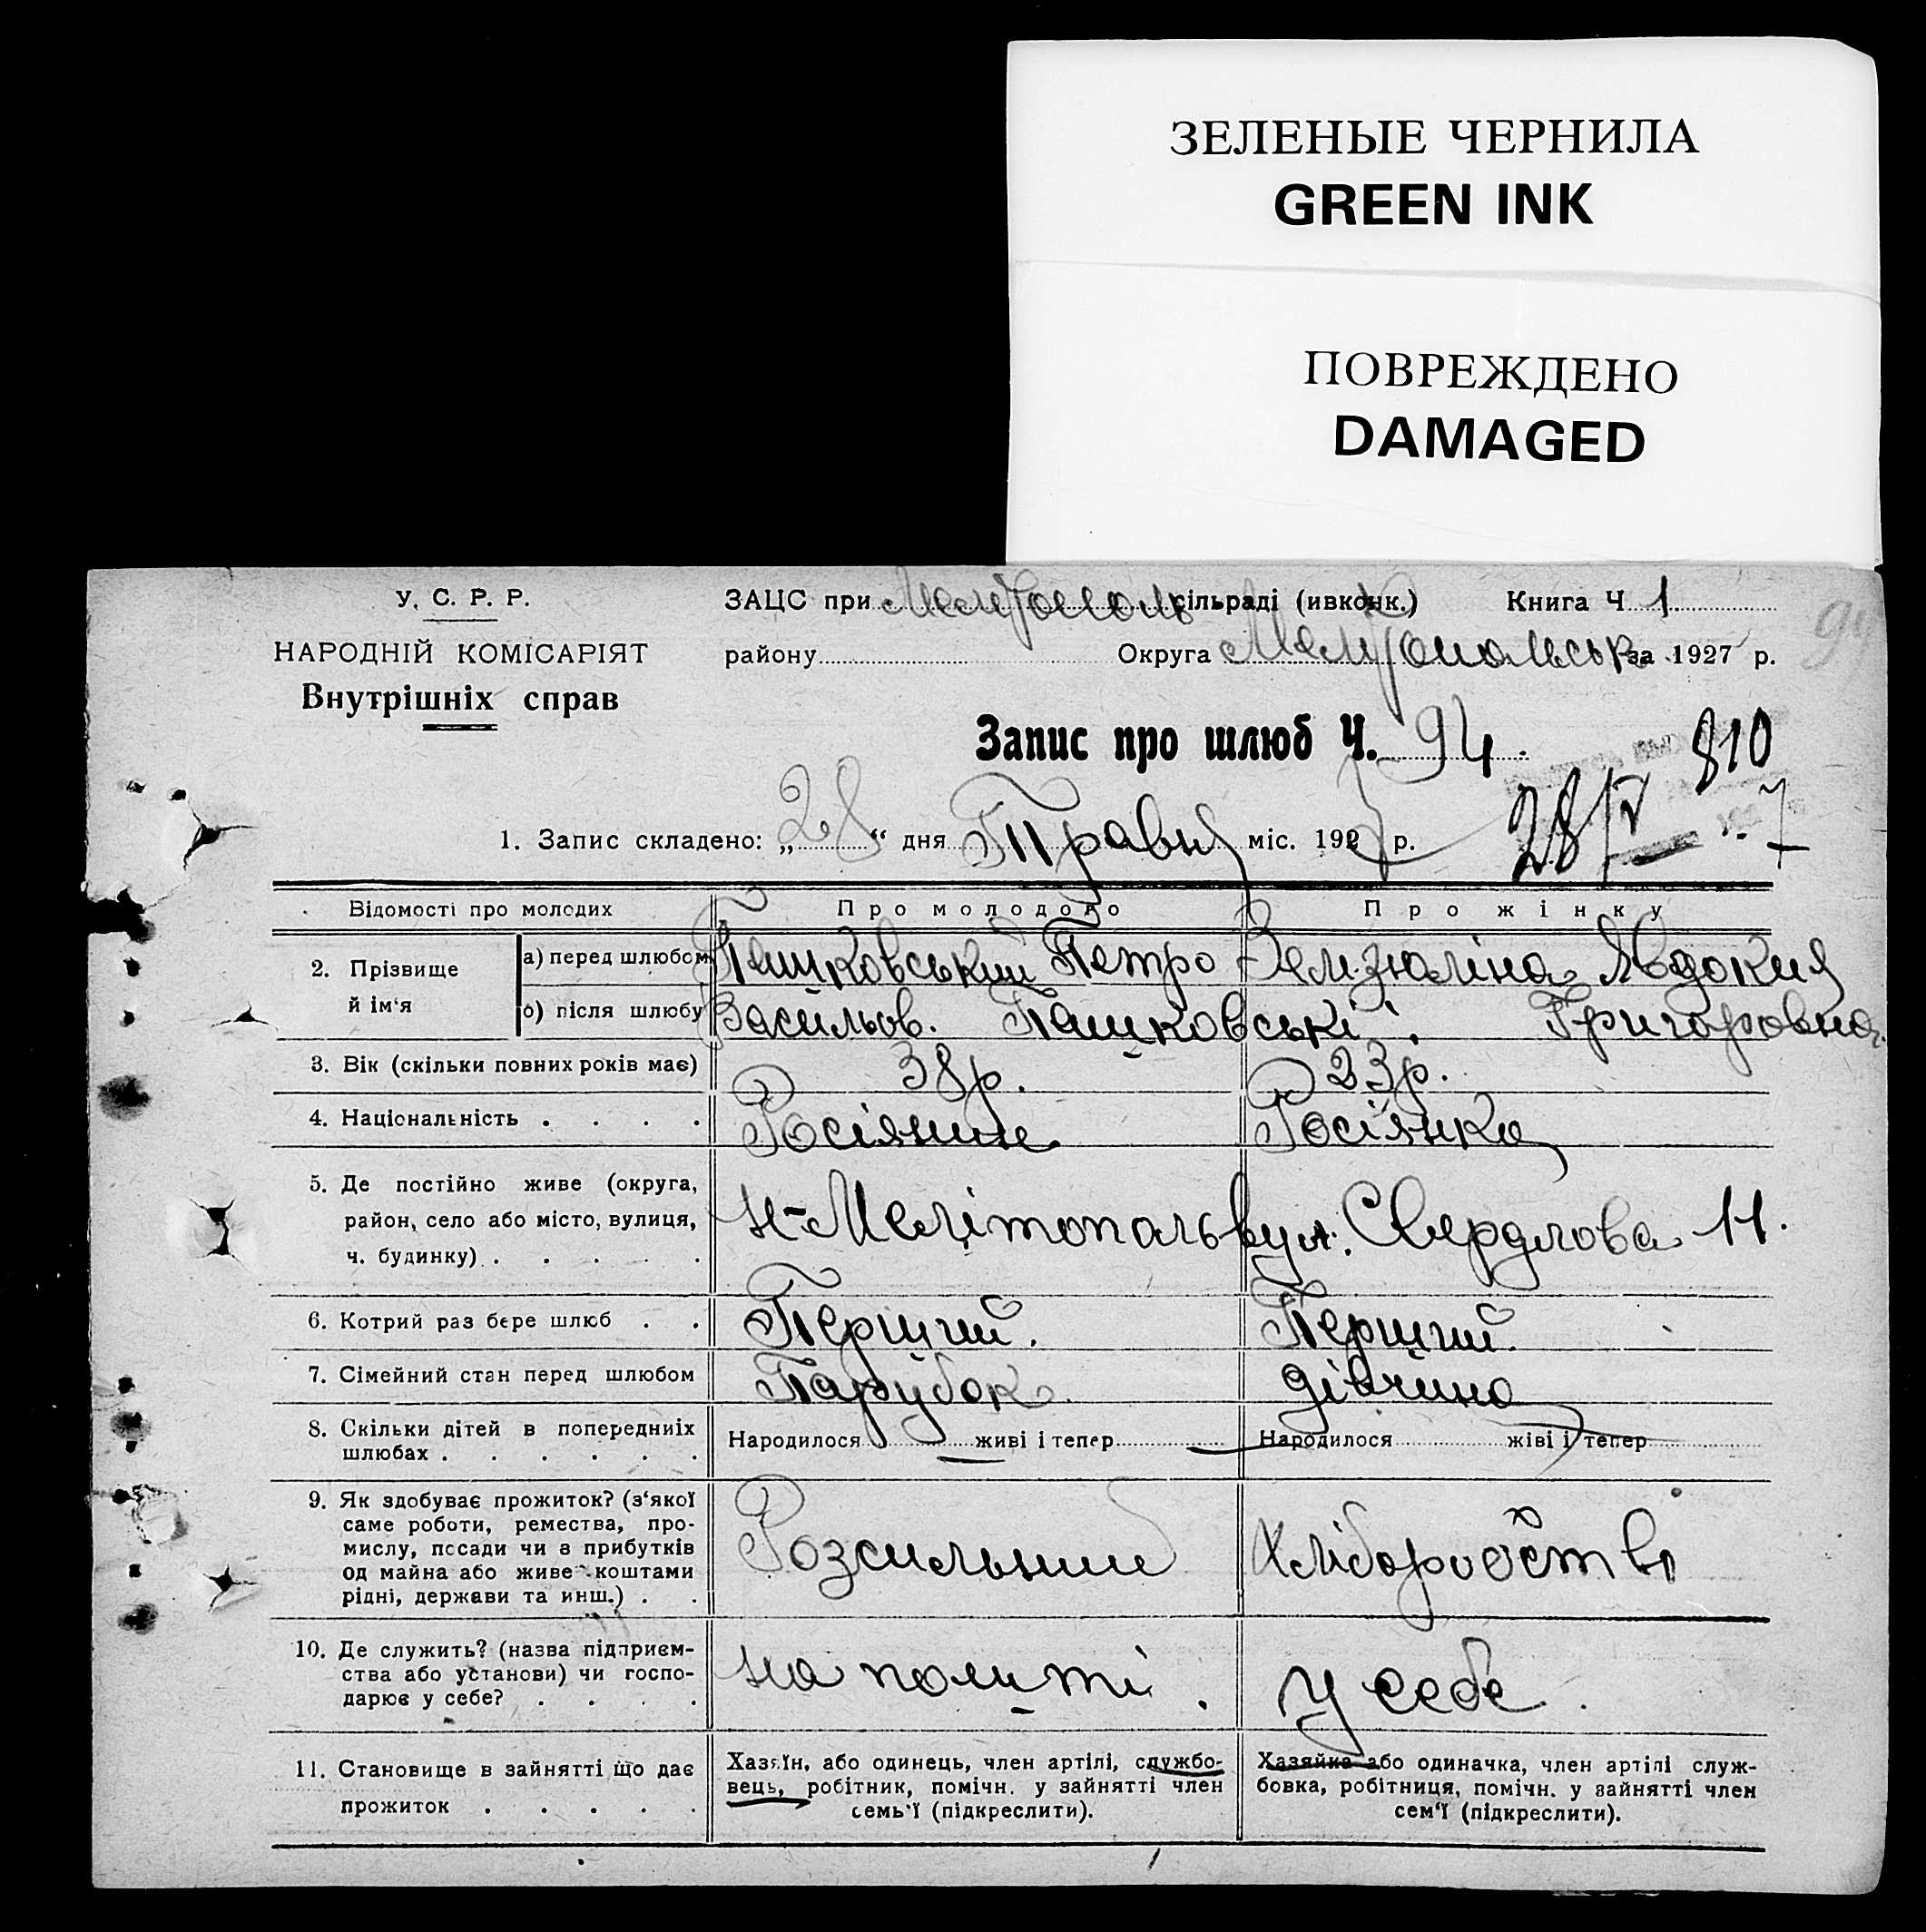 ЗЕЛЕНЫЕ ЧЕРНИЛА
GREEN INK
ПОВРЕЖДЕНО
DAMAGED
У. С. Р. Р.
НАРОДНІЙ КОМІСАРІЯТ
Внутрішніх справ
ЗАЦС при Мелітополь сільраді (ивконк.) Книга Ч 1
району Округа Мелітопольськ за 1927 р.
94
Запис про шлюб Ч. 94
810
1. Запис складено: „28“ дня Травня міс. 1927 р.
28/V 7
Відомості про молодих Про молодого Про жінку
2. Прізвище й ім'я
а) перед шлюбом Пашковський Петро Явдокия
б) після шлюбу Васильов. Пашковські. Григоровна
3. Вік (скільки повних років має) 38р. 23р.
4. Національність Росіянин Росіянка
5. Де постійно живе (округа,
район, село або місто, вулиця,
ч. будинку)
н-Мелітополь вул. Свердлова 11.
6. Котрий раз бере шлюб Перший. Перший.
7. Сімейний стан перед шлюбом Парубок дівчина
8. Скільки дітей в попередниіх
шлюбах
Народилося живі і тепер Народилося жіві і тепер
9. Як здобуває прожиток? (з'якої
саме роботи, ремества, про-
мислу, посади чи з прибутків
од майна або живе коштами
рідні, держави та инш.)
Розсильний Хліборобстві
10. Де служить? (назва підприєм-
ства або установи) чи госпо-
дарює у себе?
на у себе.
11. Становище в зайнятті що дає
прожиток
Хазяїн, або одинець, член артілі, службо-
вець, робітник, помічн. у зайнятті член
семь'ї (підкреслити).
Хазяйка або одиначка, член артілі служ-
бовка, робітниця, помічн. у зайнятті член
сем'ї (підкреслити).